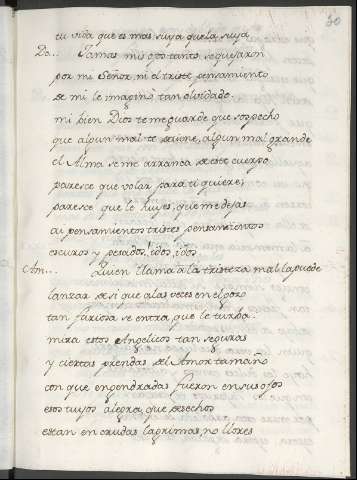 30
tu vida que es mas suya quela suya
Do... Jamas mis ojos tanto se quijaron
por mi Señor, ni el triste pensamiento
de mi le imaginò tan olvidado.
mi bien Dios te me guarde que sospecho
que algun mal te detiene, algun mal grande
el Alma se me arranca de este cuerpo
paresce que volar para ti quiere,
paresce que le huyes, que me dejas
ai pensamientos tristes pensamientos
escuros y pesados! idos, idos.
Am... Quien llama à la tristeza mal la puede
lanzar de si que a las veces en el pozo
tan furiosa se entra, que le turba.
mira estos Angelicos tan seguros
y ciertas prendas del Amor tamaño
con que engendradas fueron en sus ojos
esos tuyos alegra, que desechos
estan en crudas lagrimas, no llores